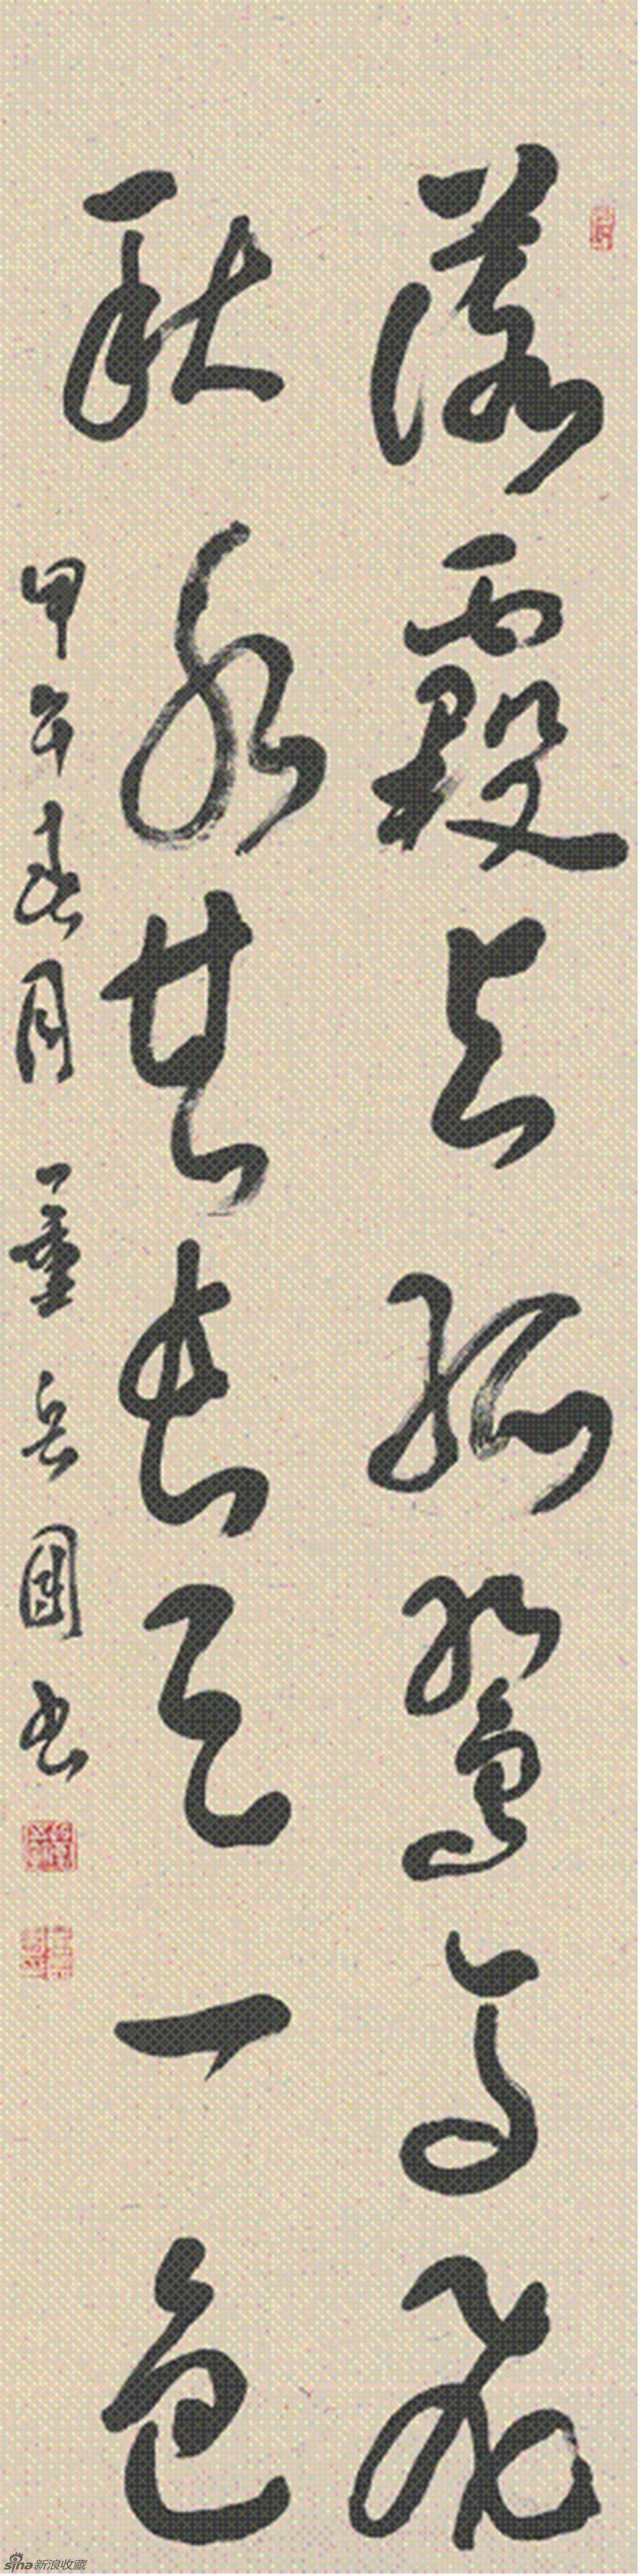 落霞与孤鹜齐飛
秋水共長天一色
甲午春月 董兵國书
sina新浪收藏